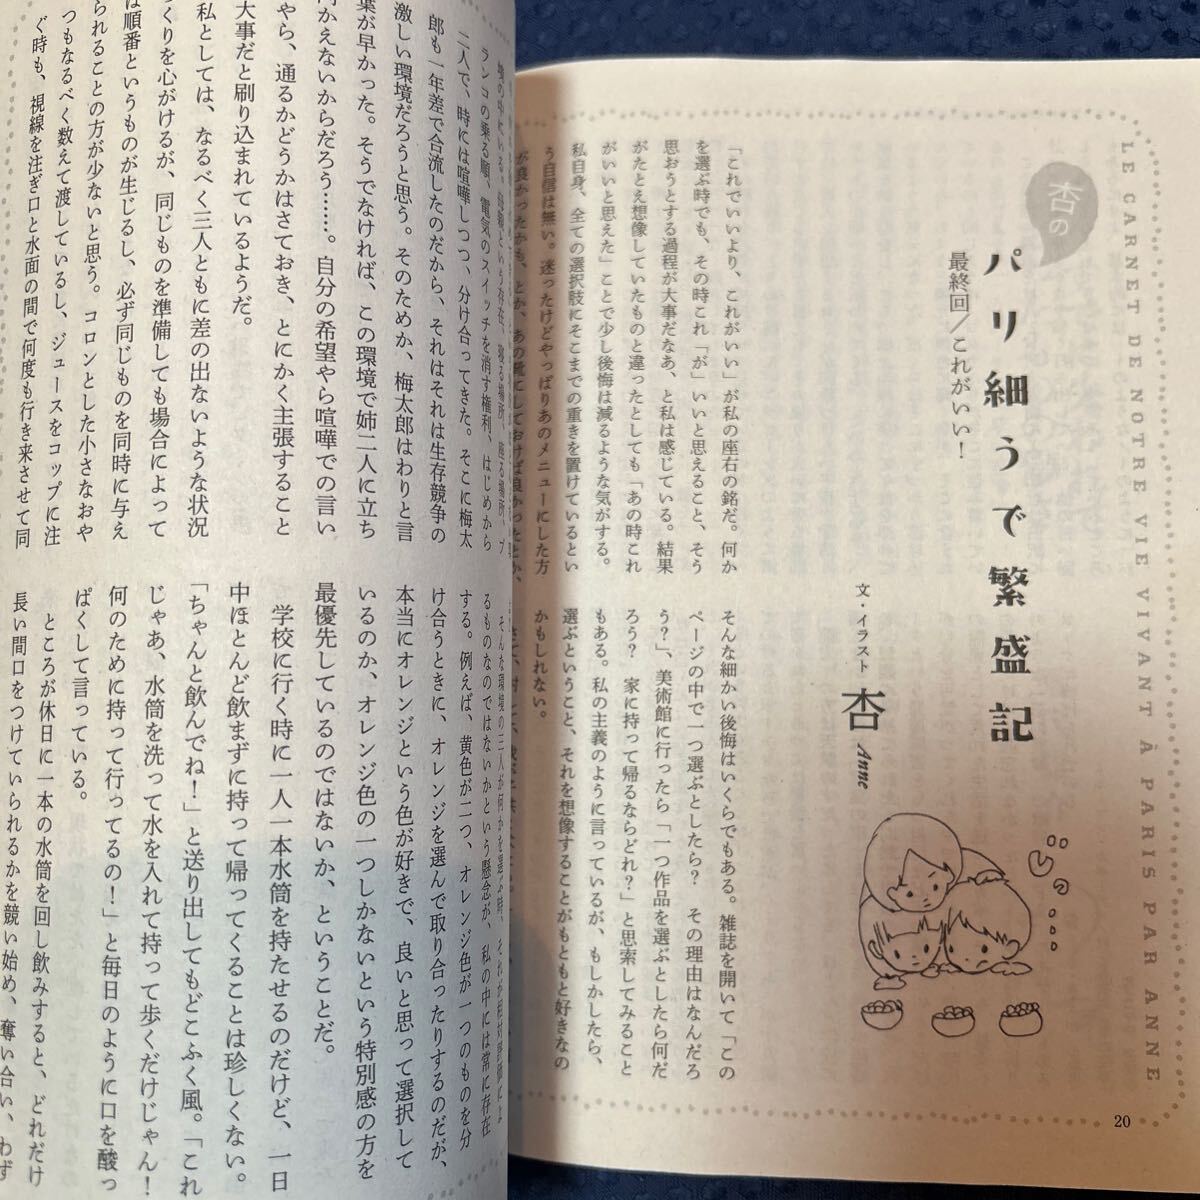 LE CARNET DE NOTRE VIE VIVANT À PARIS PAR ANNE
杏の
パリ細うで繁盛記
最終回／これがいい！
文・イラスト 杏 Anne
じっ…
「これでいいより、これがいい」が私の座右の銘だ。何か
を選ぶ時でも、その時これ「が」いいと思えること、そう
思おうとする過程が大事だなあ、と私は感じている。結果
がたとえ想像していたものと違ったとしても「あの時これ
がいいと思えた」ことで少し後悔は減るような気がする。
私自身、全ての選択肢にそこまでの重きを置けているとい
う自信は無い。迷ったけどやっぱりあのメニューにした方
が良かったかも、とか、あの靴にしておけば良かったとか、
そんな細かい後悔はいくらでもある。雑誌を開いて「この
ページの中で一つ選ぶとしたら？　その理由はなんだろ
う？」、美術館に行ったら「一つ作品を選ぶとしたら何だ
ろう？　家に持って帰るならどれ？」と思索してみること
もある。私の主義のように言っているが、もしかしたら、
選ぶということ、それを想像することがもともと好きなの
かもしれない。
20
ランコの乗る順、電気のスイッチを消す権利、はじめから
二人で、時には喧嘩しつつ、分け合ってきた。そこに梅太
郎も一年差で合流したのだから、それはそれは生存競争の
激しい環境だろうと思う。そのためか、梅太郎はわりと言
葉が早かった。そうでなければ、この環境で姉二人に立ち
向かえないからだろう……。自分の希望やら喧嘩での言い
やら、通るかどうかはさておき、とにかく主張すること
大事だと刷り込まれているようだ。
私としては、なるべく三人ともに差の出ないような状況
くりを心がけるが、同じものを準備しても場合によって
は順番というものが生じるし、必ず同じものを同時に与え
られることの方が少ないと思う。コロンとした小さなおや
つもなるべく数えて渡しているし、ジュースをコップに注
ぐ時も、視線を注ぎ口と水面の間で何度も行き来させて同
そんな環境の三人が何かを選ぶ時、それが相対評価によ
るものなのではないかという懸念が、私の中には常に存在
する。例えば、黄色が二つ、オレンジ色が一つのものを分
け合うときに、オレンジを選んで取り合ったりするのだが、
本当にオレンジという色が好きで、良いと思って選択して
いるのか、オレンジ色の一つしかないという特別感の方を
最優先しているのではないか、ということだ。
学校に行く時に一人一本水筒を持たせるのだけど、一日
中ほとんど飲まずに持って帰ってくることは珍しくない。
「ちゃんと飲んでね！」と送り出してもどこふく風。「これ
じゃあ、水筒を洗って水を入れて持って歩くだけじゃん！
何のために持って行ってるの！」と毎日のように口を酸っ
ぱくして言っている。
ところが休日に一本の水筒を回し飲みすると、どれだけ
長い間口をつけていられるかを競い始め、奪い合い、わず